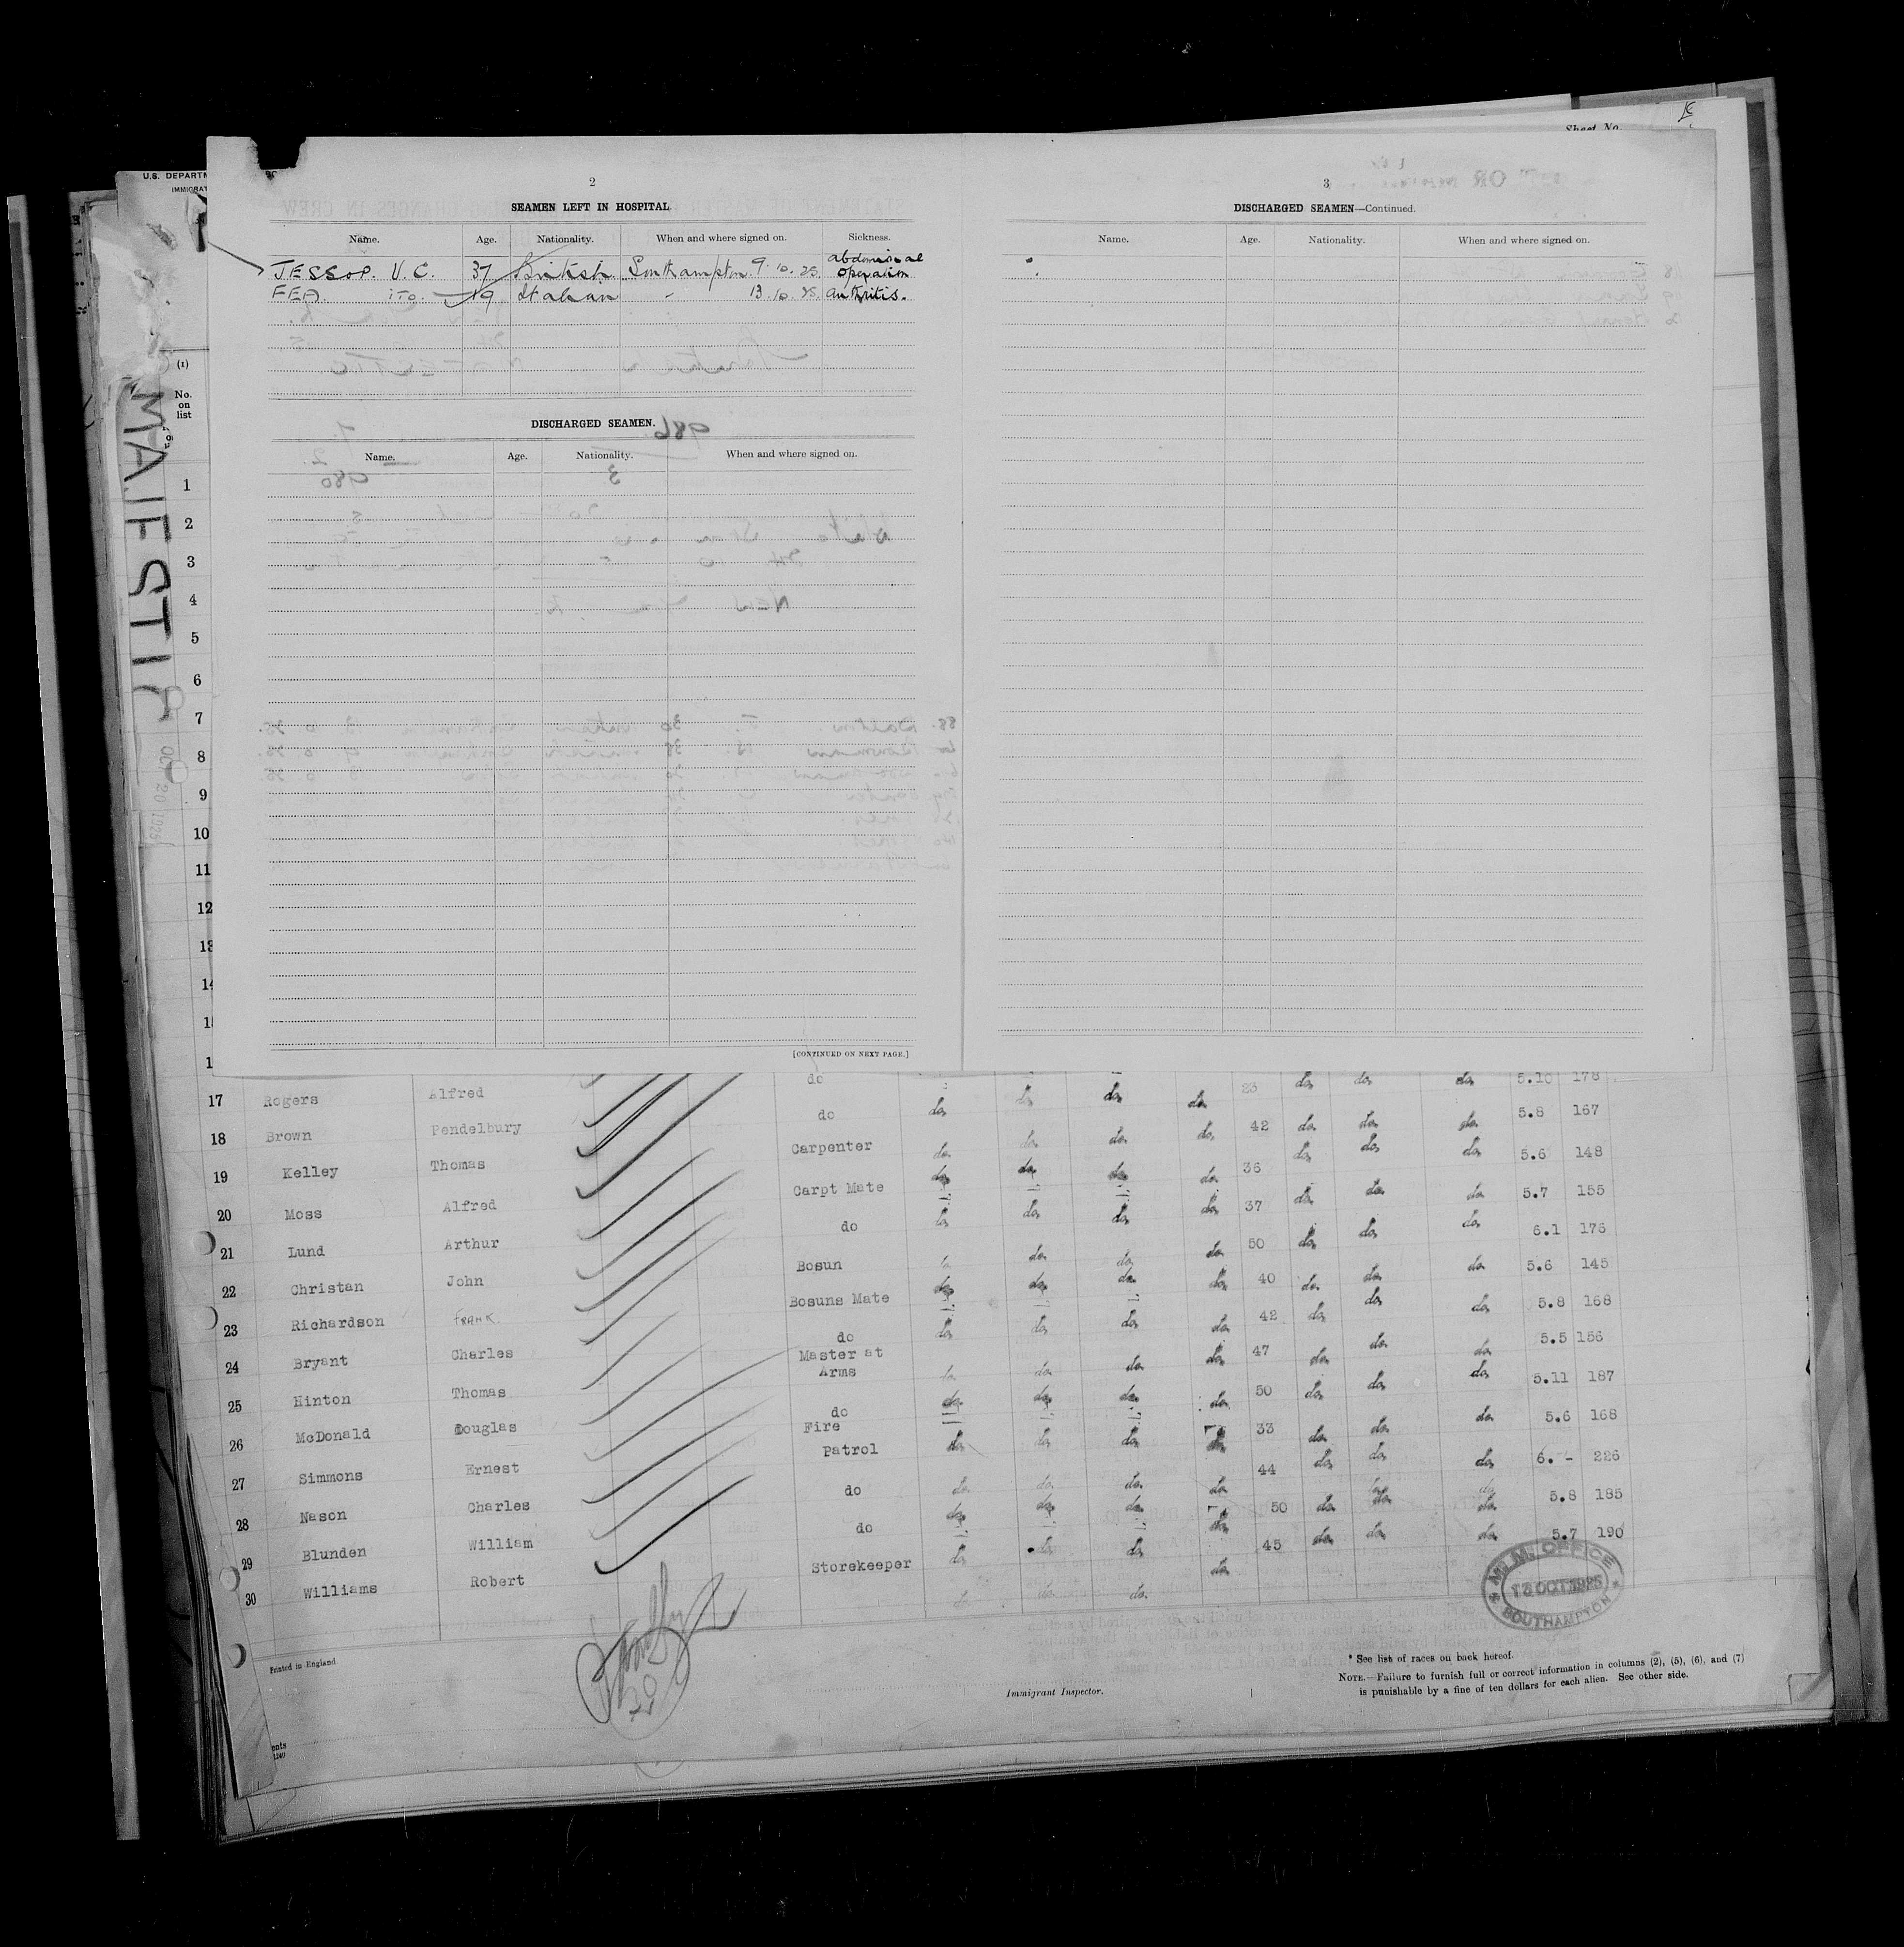 Sheet No.
U.S. DEPARTM
IMMIGRAT
MAJESTIC
OCT 20 1925
(1)
No.
on
list
2
SEAMEN LEFT IN HOSPITAL.
Name. Age. Nationality. When and where signed on. Sickness.
JESSOP. V. C. 37 British Southampton 9.10.25. abdominal operation
FEA. ITO. 19 Italian - 13.10.25. arthritis.
DISCHARGED SEAMEN.
Name. Age. Nationality. When and where signed on.
[CONTINUED ON NEXT PAGE.]
3
DISCHARGED SEAMEN—Continued.
Name. Age. Nationality. When and where signed on.
1
2
3
4
5
6
7
8
9
10
11
12
13
14
do do do do 23 do do do 5.10 178
17 Rogers Alfred do do do do do 42 do do do 5.8 167
18 Brown Pendelbury Carpenter do do do do 36 do do do 5.6 148
19 Kelley Thomas Carpt Mate do do do do 37 do do do 5.7 155
20 Moss Alfred do do do do do 50 do do do 6.1 176
21 Lund Arthur Bosun do do do do 40 do do do 5.6 145
22 Christan John Bosuns Mate do do do do 42 do do do 5.8 168
23 Richardson FRANK. do do do do do 47 do do do 5.5 156
24 Bryant Charles Master at Arms do do do do 50 do do do 5.11 187
25 Hinton Thomas do do do do do 33 do do do 5.6 168
26 McDonald Douglas Fire Patrol do do do do 44 do do do 6.- 226
27 Simmons Ernest do do do do do 50 do do do 5.8 185
28 Nason Charles do do do do do 45 do do do 5.7 190
29 Blunden William Storekeeper do do do do
30 Williams Robert
M.M. OFFICE
13 OCT 1925
SOUTHAMPTON
Printed in England
Immigrant Inspector.
* See list of races on back hereof.
NOTE.—Failure to furnish full or correct information in columns (2), (5), (6), and (7)
is punishable by a fine of ten dollars for each alien. See other side.